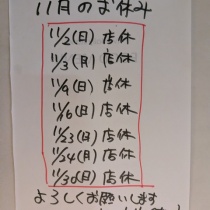 11月のお休み
11/2(日) 店休
11/3(月) 店休
11/9(日) 店休
11/16(日) 店休
11/23(日) 店休
11/24(月) 店休
11/30(日) 店休
よろしくお願いします